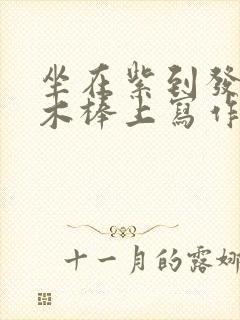 坐在紫到發
木棒上寫作
十一月的露娜